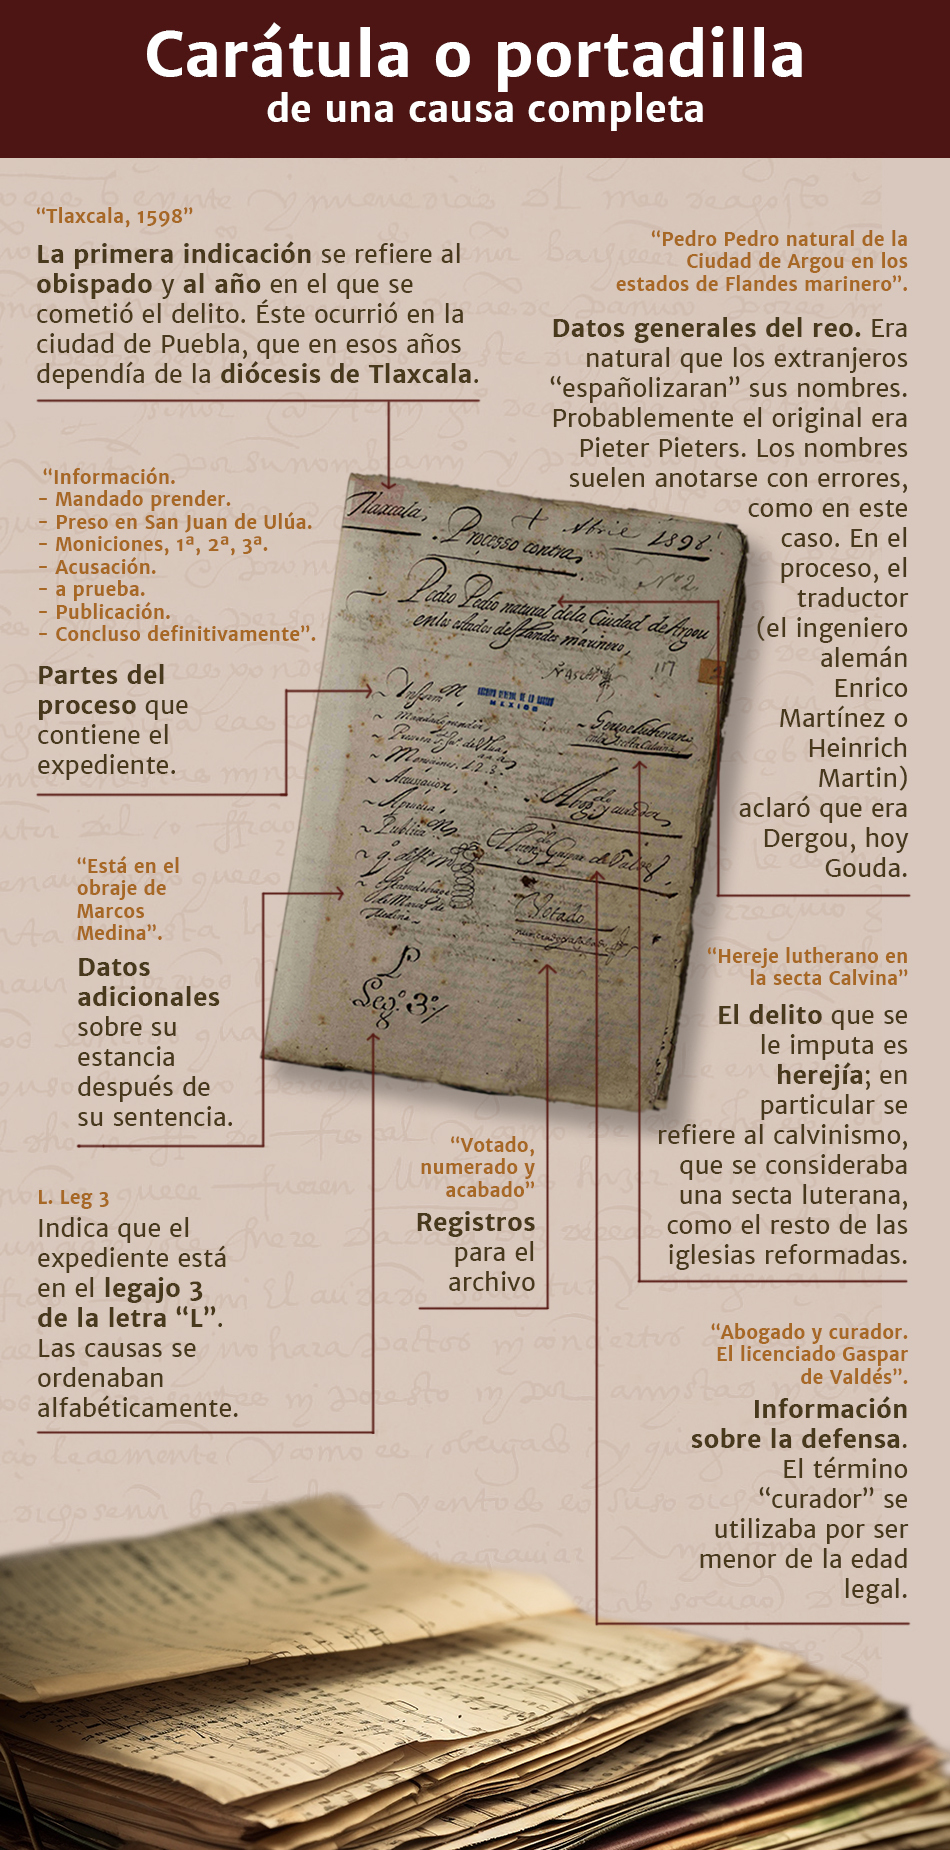 Carátula o portadilla
de una causa completa
“Tlaxcala, 1598”
La primera indicación se refiere al
obispado y al año en el que se
cometió el delito. Éste ocurrió en la
ciudad de Puebla, que en esos años
dependía de la diócesis de Tlaxcala.
“Pedro Pedro natural de la
Ciudad de Argou en los
estados de Flandes marinero”.
Datos generales del reo. Era
natural que los extranjeros
“españolizaran” sus nombres.
Probablemente el original era
Pieter Pieters. Los nombres
suelen anotarse con errores,
como en este
caso. En el
proceso, el
traductor
(el ingeniero
alemán
Enrico
Martínez o
Heinrich
Martin)
aclaró que era
Dergou, hoy
Gouda.
“Información.
- Mandado prender.
- Preso en San Juan de Ulúa.
- Moniciones, 1ª, 2ª, 3ª.
- Acusación.
- a prueba.
- Publicación.
- Concluso definitivamente”.
Partes del
proceso que
contiene el
expediente.
“Está en el
obraje de
Marcos
Medina”.
Datos
adicionales
sobre su
estancia
después de
su sentencia.
L. Leg 3
Indica que el
expediente está
en el legajo 3
de la letra “L”.
Las causas se
ordenaban
alfabéticamente.
Tlaxcala, + Abril 1598.
Processo contra,
Nº 2
Pedro Pedro natural dela Ciudad de Argou
en los estados de flandes marinero,
117
ARCHIVO GENERAL DE LA NACION
MEXICO
Moniciones. 1. 2. 3.
Accusacion,
Aprueva,
Abogdo y curador,
Votado
L
Leg.º 3º
“Votado,
numerado y
acabado”
Registros
para el
archivo
“Hereje lutherano en
la secta Calvina”
El delito que se
le imputa es
herejía; en
particular se
refiere al calvinismo,
que se consideraba
una secta luterana,
como el resto de las
iglesias reformadas.
“Abogado y curador.
El licenciado Gaspar
de Valdés”.
Información
sobre la defensa.
El término
“curador” se
utilizaba por ser
menor de la edad
legal.